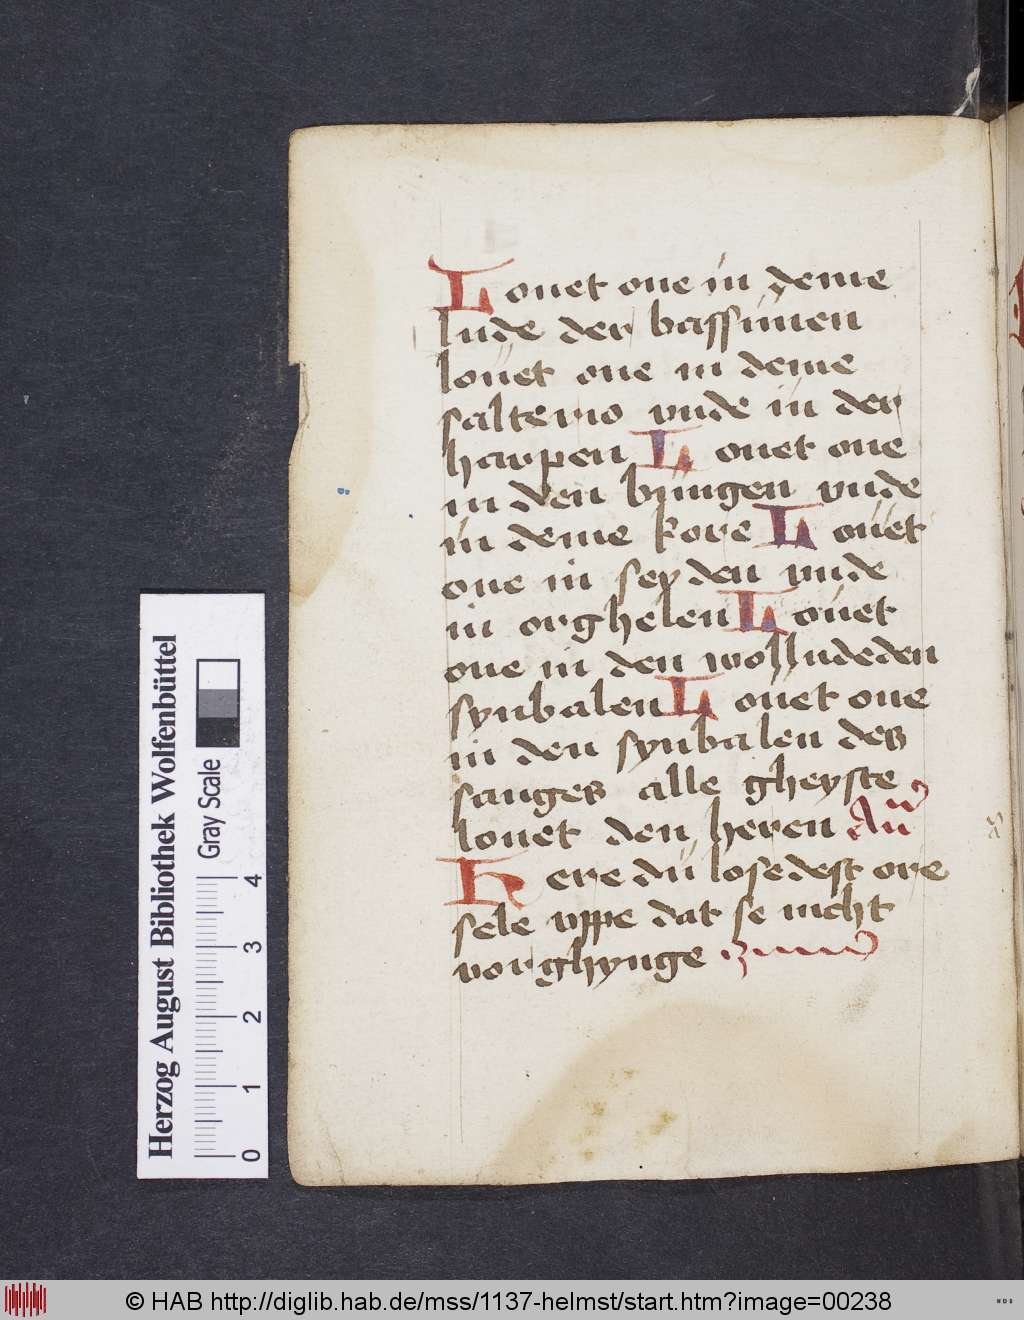 Louet one in deme
lude der bassunen
louet one in deme
salterio vnde in der
harpen Louet one
in den bungen vnde
in deme kore Louet
one in seyden vnde
in orghelen Louet
one in den wolludeden
synbalen Louet one
in den synbalen des
sanges alle gheyste
louet den heren
Here du losedest ore
sele vppe dat se nicht
vorghynge
Herzog August Bibliothek Wolfenbüttel
Gray Scale
0 1 2 3 4
© HAB http://diglib.hab.de/mss/1137-helmst/start.htm?image=00238